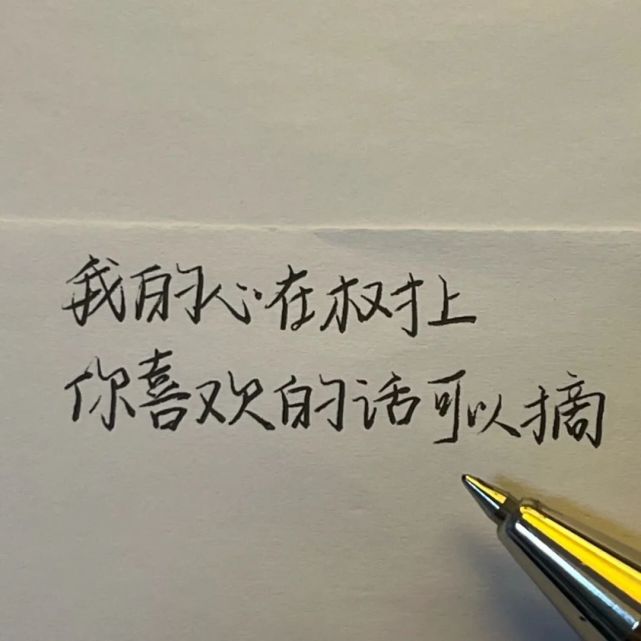 我的心在树上
你喜欢的话可以摘